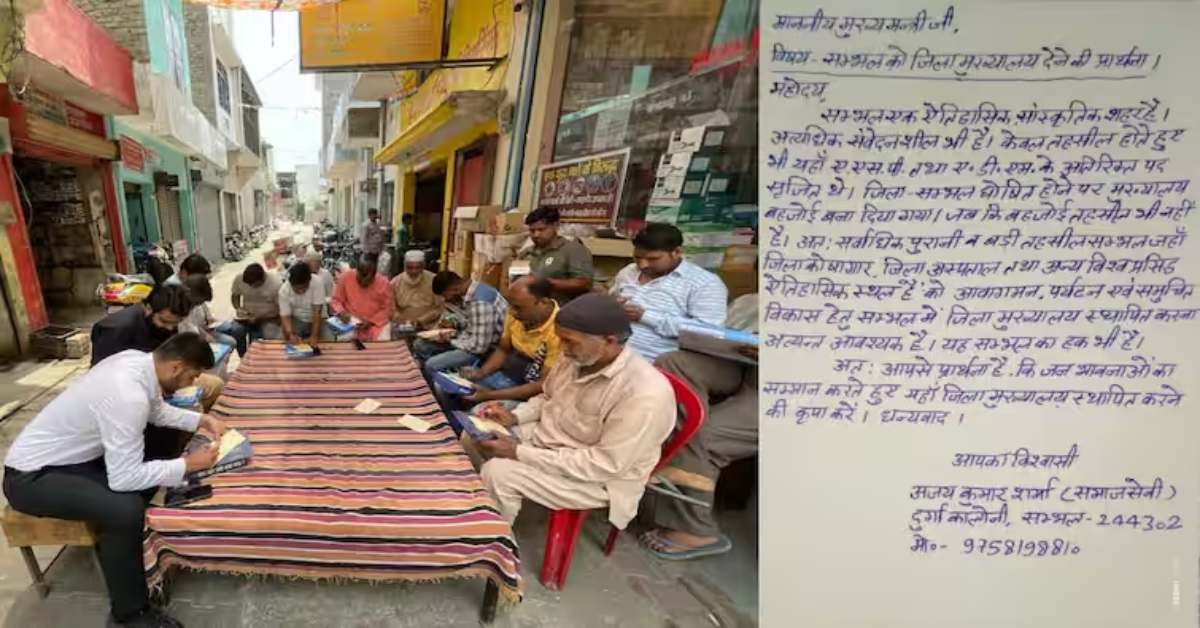 माननीय मुख्यमन्त्री जी,
विषय - सम्भल को जिला मुख्यालय देने की प्रार्थना।
महोदय,
सम्भल एक ऐतिहासिक, सांस्कृतिक शहर है।
अत्यधिक संवेदनशील भी है। केवल तहसील होते हुए
भी यहाँ ए.एस.पी. तथा ए.डी.एम. के अतिरिक्त पद
सृजित थे। जिला-सम्भल घोषित होने पर मुख्यालय
बहजोई बना दिया गया। जब कि बहजोई तहसील भी नहीं
है। अत: सर्वाधिक पुरानी व बड़ी तहसील सम्भल जहाँ
जिला कोषागार, जिला अस्पताल तथा अन्य विश्व प्रसिद्ध
ऐतिहासिक स्थल हैं को आवागमन, पर्यटन एवं समुचित
विकास हेतु सम्भल में जिला मुख्यालय स्थापित करना
अत्यन्त आवश्यक है। यह सम्भल का हक भी है।
अत: आपसे प्रार्थना है, कि जन भावनाओं का
सम्मान करते हुए यहाँ जिला मुख्यालय स्थापित करने
की कृपा करें। धन्यवाद।
आपका विश्वासी
अजय कुमार शर्मा (समाजसेवी)
दुर्गा कालोनी, सम्भल-244302
मो०- 9758198810